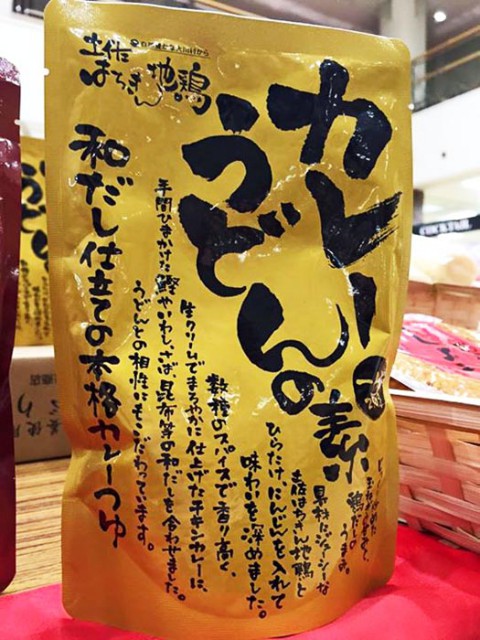 土佐
はちきん地鶏
カレー
うどんの素
具材にジューシーな
土佐はちきん地鶏と
ひらたけ、にんじんを入れて
味わいを深めました。
数種のスパイスで香り高く、
生クリームでまろやかに仕上げたチキンカレーに、
手間ひまかけた鰹やいわし、さば、昆布等の和だしを合わせました。
うどんとの相性にもこだわっています。
和だし仕立ての本格カレーつゆ
COCKTAIL